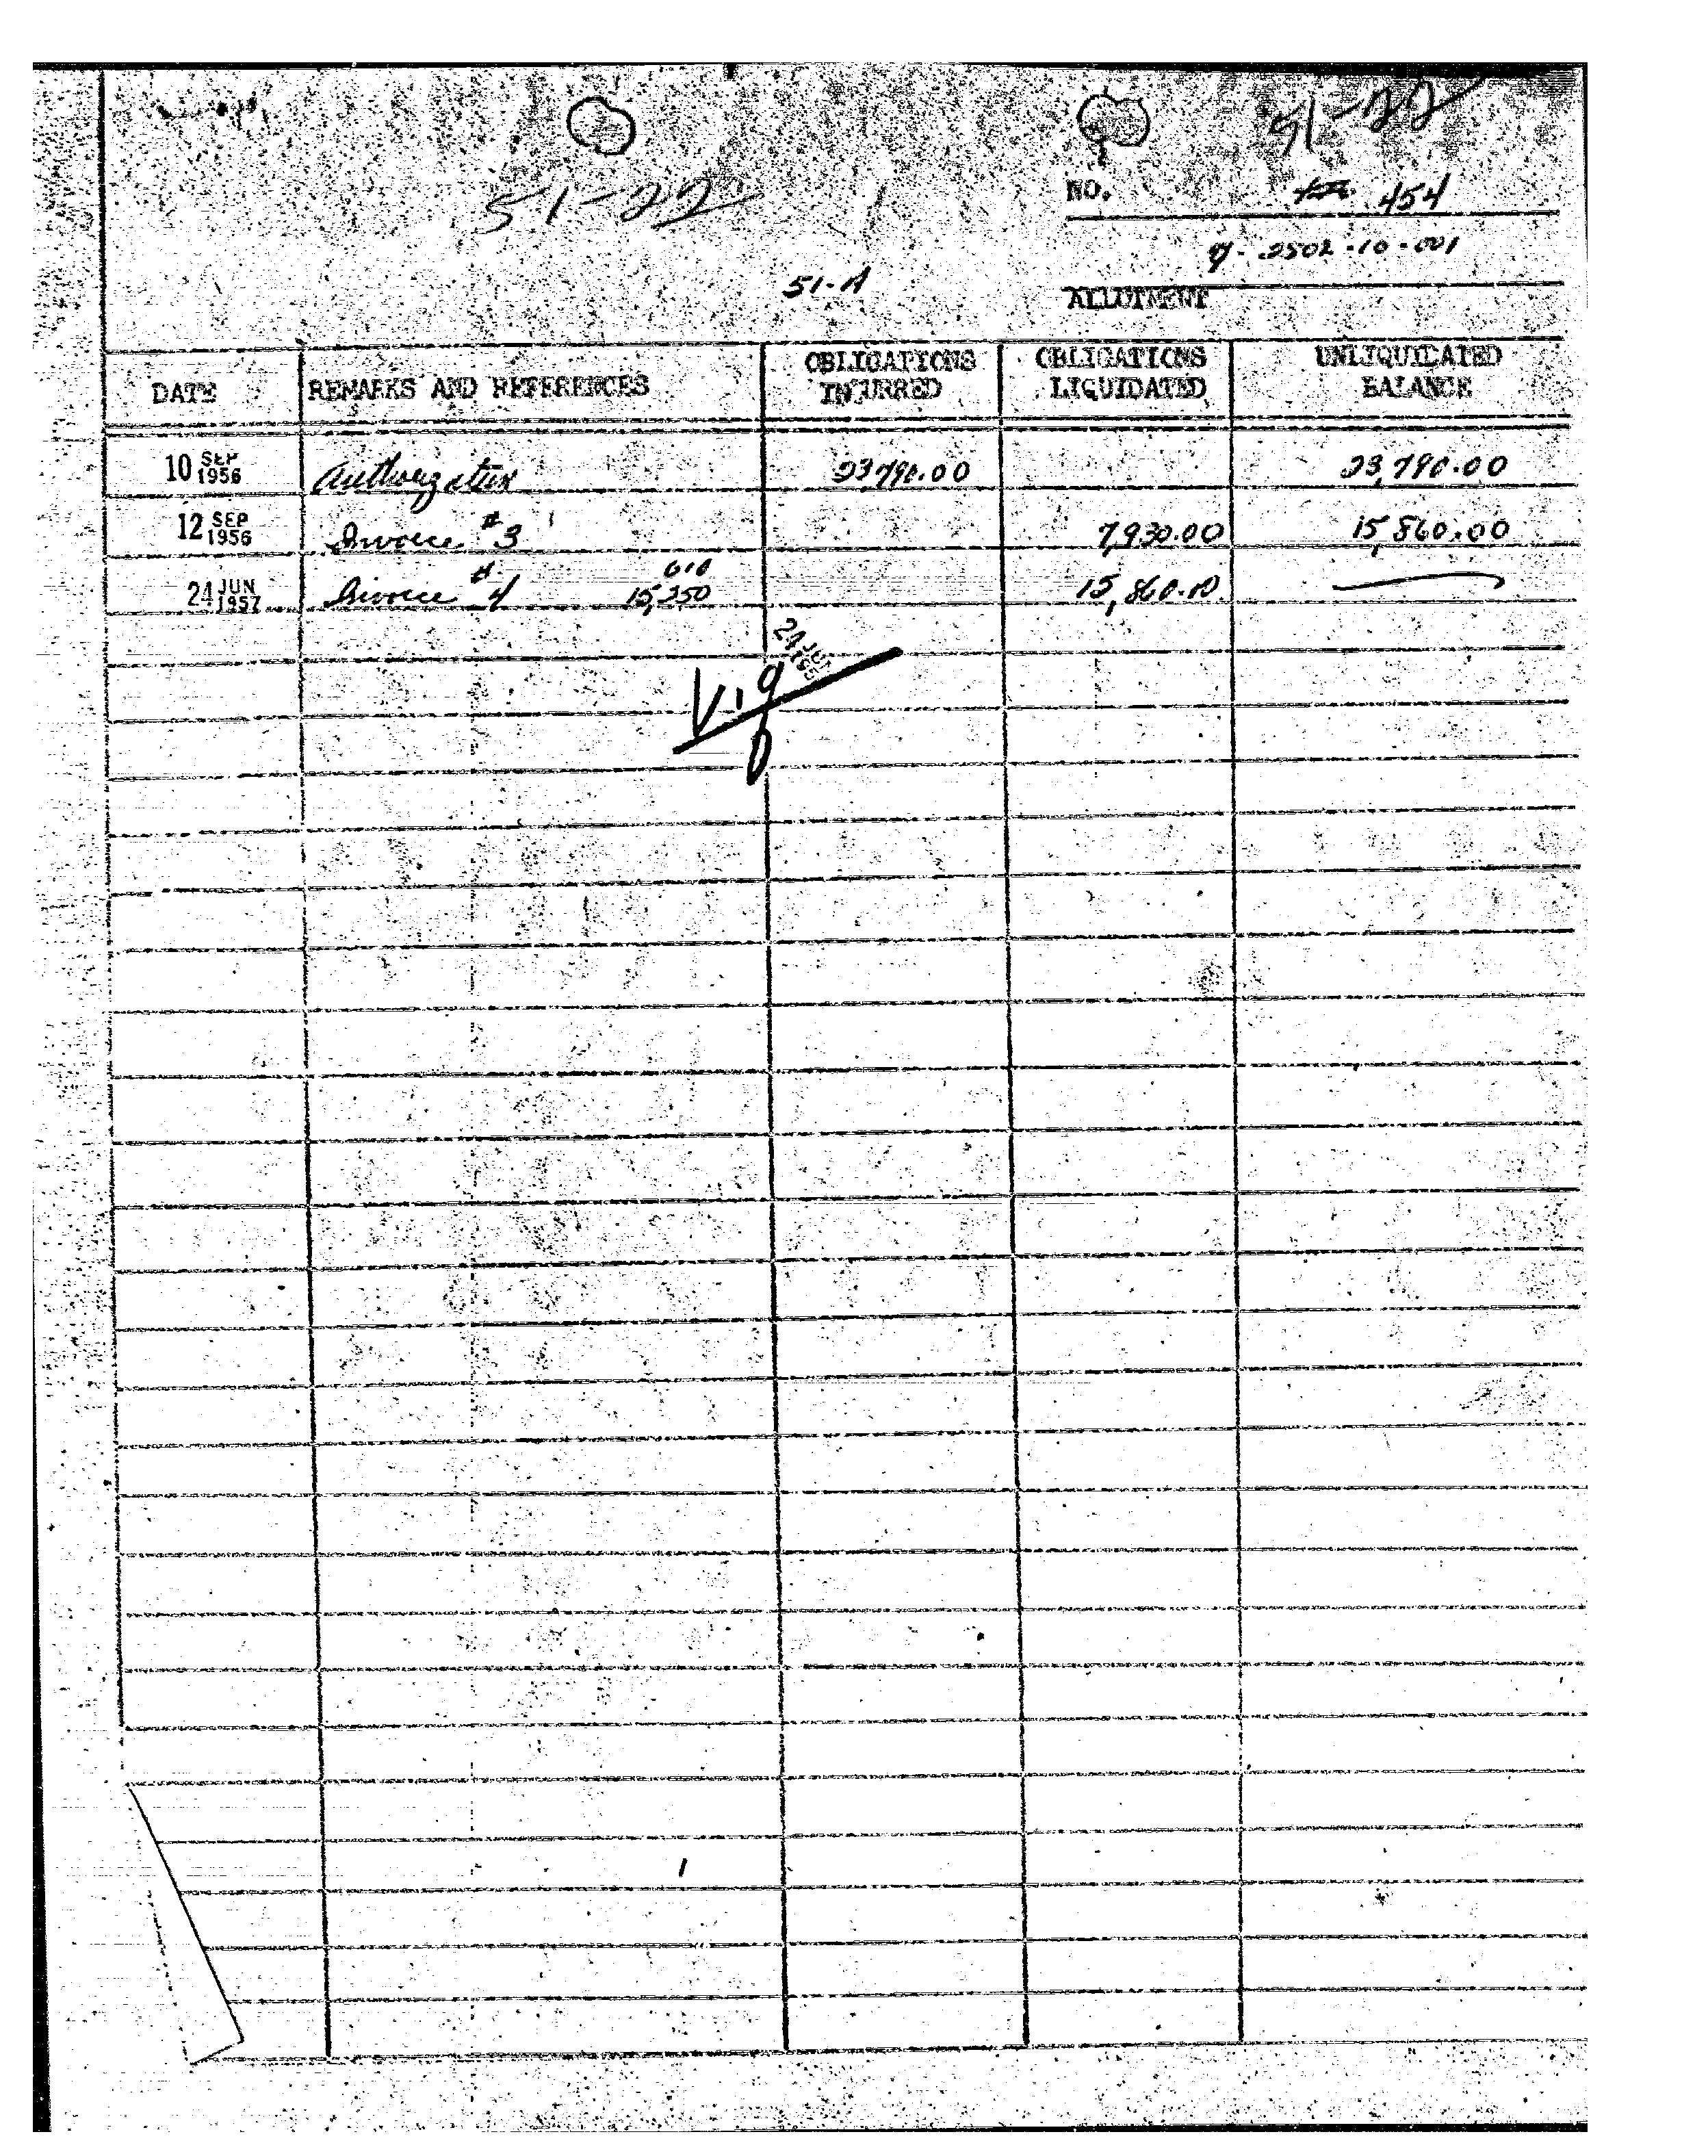 51-22
51-22
NO. 454
51-A
ALLOTMENT
DATE REMARKS AND REFERENCES OBLIGATIONS INCURRED OBLIGATIONS LIQUIDATED UNLIQUIDATED BALANCE
10 SEP 1956 Authorization 23,790.00 23,790.00
12 SEP 1956 Invoice #3 7,930.00 15,860.00
24 JUN 1957 Invoice #4 610 15,250 15,860.00